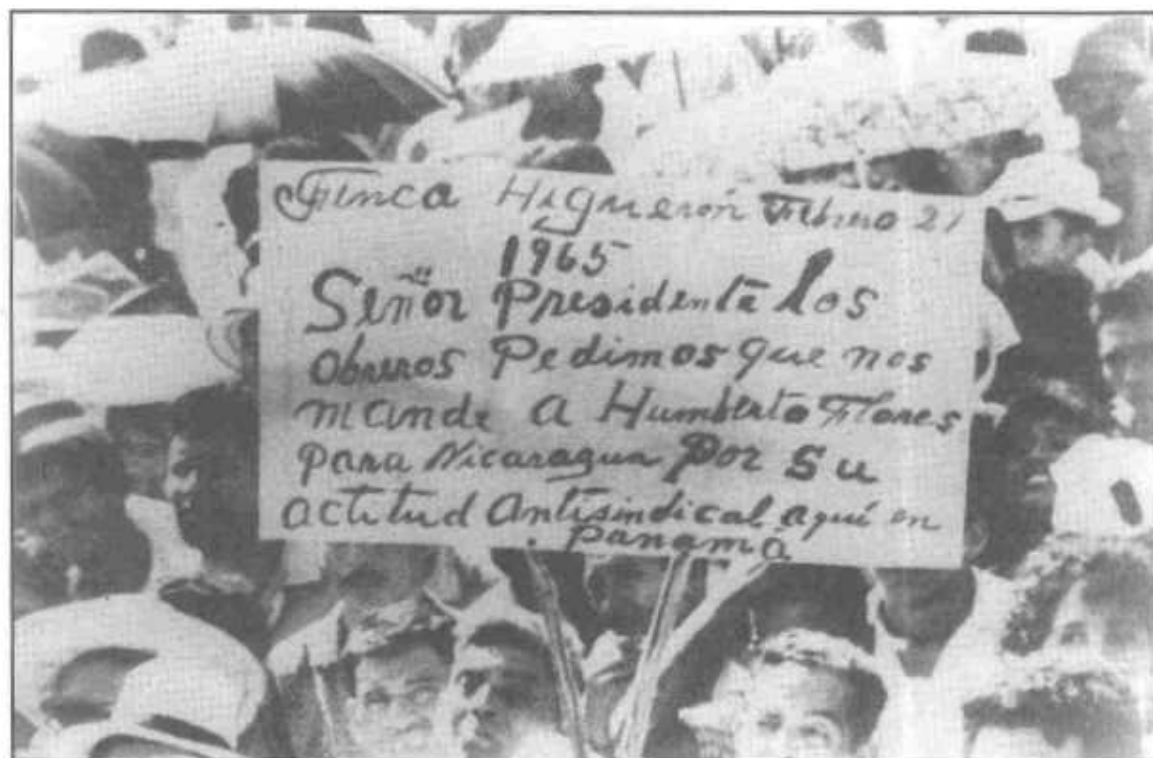 Finca Higuerón Febrero 21
1965
Señor Presidente los
obreros Pedimos que nos
mande a Humberto Flores
para Nicaragua Por su
actitud Antisindical aquí en
Panamá